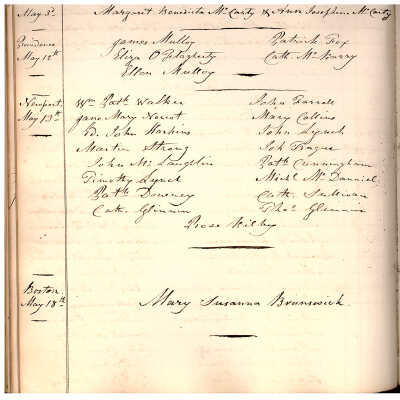 May 3d. Margaret Benedicta McCarty & Ann Josephine McCarty
Providence
May 12th James Mulloy Patrick Fox
Eliza O'Flagherty Cath. McBarry
Ellen Mulloy
Newport
May 13th Wm Patk Walker John Farrell
Jane Mary Mary Collins
John Harkins John Lynch
Martin Strong
John McLaughlin Patk Cunningham
Timothy Lynch Michl McDanniel
Patk Downey Cath. Sullivan
Cath. Glinnin Thos Glinnin
Rose Kilby
Boston
May 18th Mary Susanna Brunswick